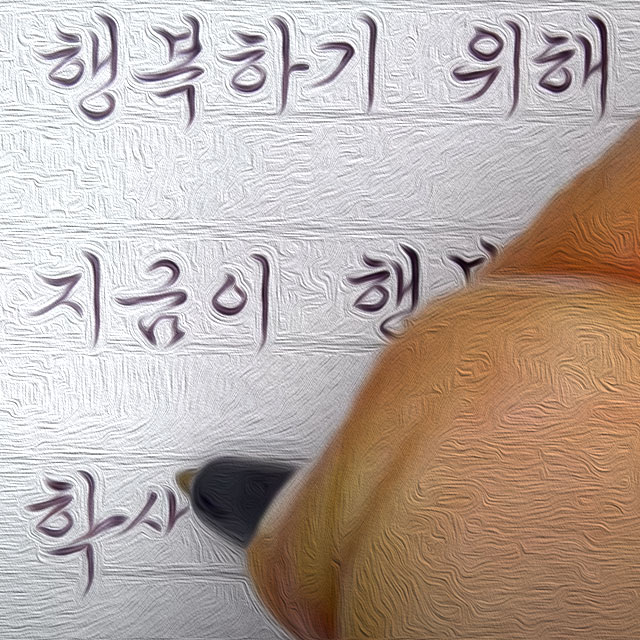 행복하기 위해
지금이 행
학사